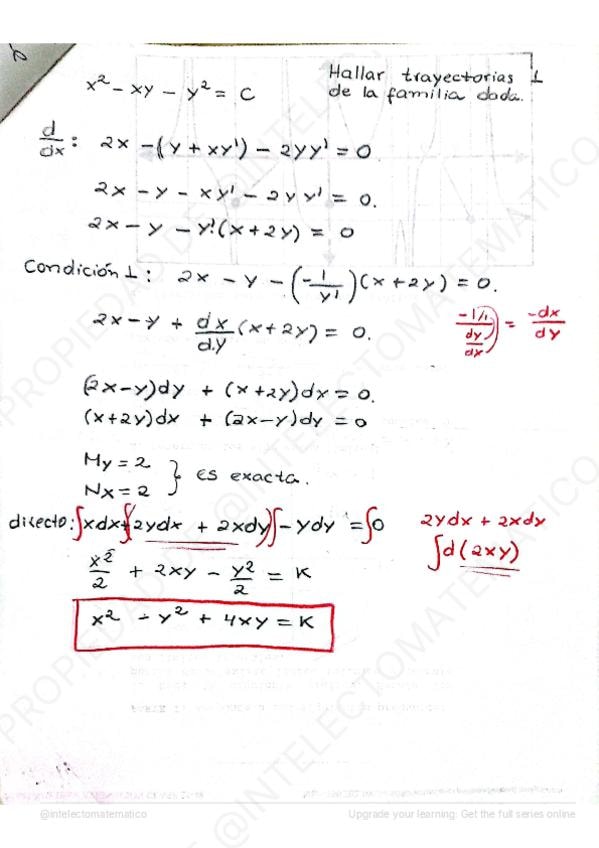 x² - xy - y² = C
Hallar trayectorias ⊥
de la familia dada.
d/dx : 2x - (y + xy') - 2yy' = 0
2x - y - xy' - 2yy' = 0.
2x - y - y'(x + 2y) = 0
Condición ⊥: 2x - y - (-1/y')(x + 2y) = 0.
2x - y + dx/dy (x + 2y) = 0.
-1/(dy/dx) = -dx/dy
(2x-y)dy + (x+2y)dx = 0.
(x+2y)dx + (2x-y)dy = 0
My = 2
Nx = 2 } es exacta.
directo: ∫xdx + ∫(2ydx + 2xdy) ∫-ydy = ∫0
2ydx + 2xdy
∫d(2xy)
x²/2 + 2xy - y²/2 = K
x² - y² + 4xy = K
PROPIEDAD DE @INTELECTOMATEMATICO
@intelectomatematico
Upgrade your learning: Get the full series online